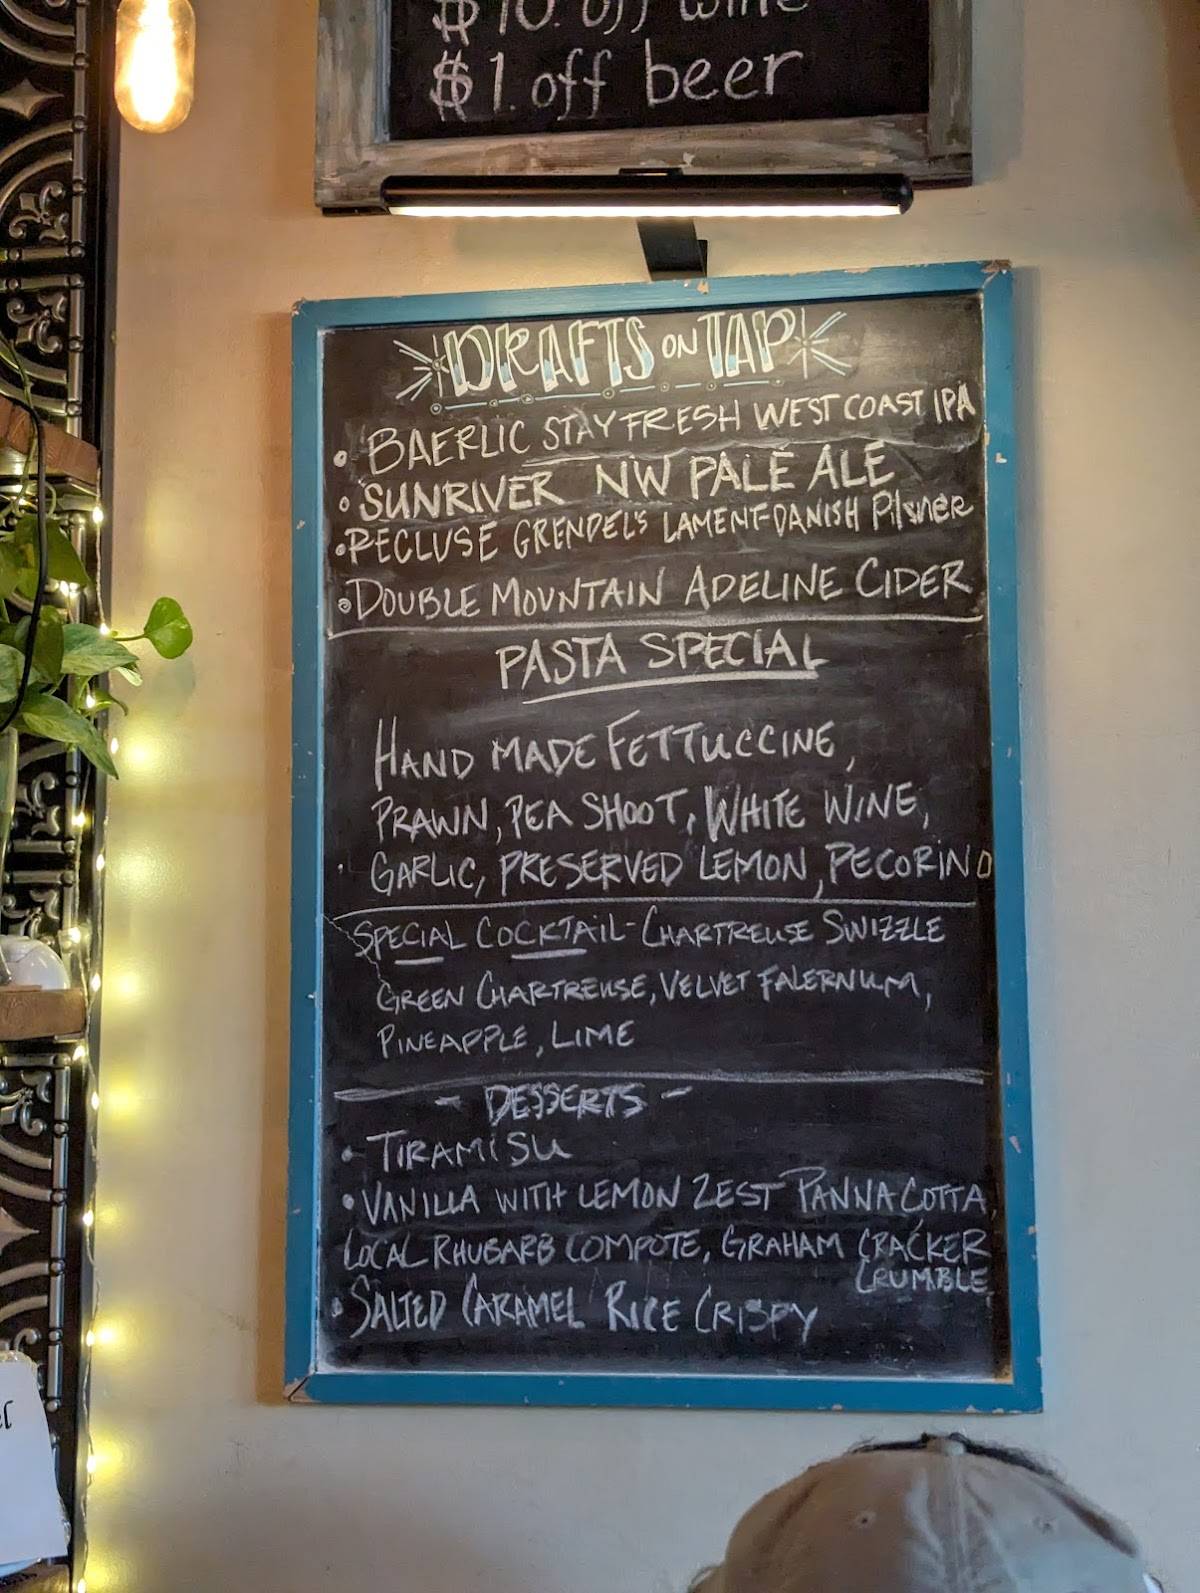 $10. off wine
$1. off beer
DRAFTS ON TAP
• BAERLIC STAY FRESH WEST COAST IPA
• SUNRIVER NW PALE ALE
• RECLUSE GRENDEL'S LAMENT-DANISH Pilsner
• DOUBLE MOUNTAIN ADELINE CIDER
PASTA SPECIAL
HAND MADE FETTUCCINE,
PRAWN, PEA SHOOT, WHITE WINE,
GARLIC, PRESERVED LEMON, PECORINO
SPECIAL COCKTAIL - CHARTREUSE SWIZZLE
GREEN CHARTREUSE, VELVET FALERNUM,
PINEAPPLE, LIME
- DESSERTS -
• TIRAMISU
• VANILLA WITH LEMON ZEST PANNA COTTA,
LOCAL RHUBARB COMPOTE, GRAHAM CRACKER
CRUMBLE
• SALTED CARAMEL RICE CRISPY